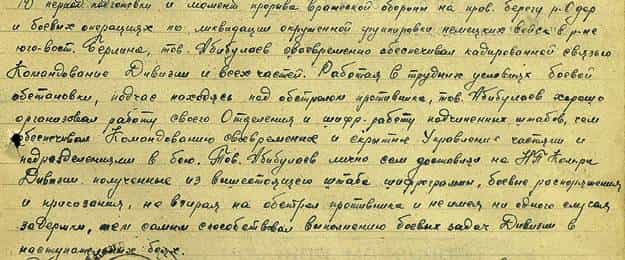 В период подготовки и момент прорыва вражеской обороны на прав. берегу р. Одер
и боевых операциях по ликвидации окруженной группировки немецких войск в р-не
юго-вост. Берлина, тов. Абибулаев своевременно обеспечивал кодированной связью
Командование Дивизии и всех частей. Работая в трудных условиях боевой
обстановки, подчас находясь под обстрелом противника, тов. Абибулаев хорошо
организовал работу своего Отделения и шифр-работу подчиненных штабов, чем
обеспечивал Командованию своевременное и скрытное Управление частями и
подразделениями в бою. Тов. Абибулаев лично сам доставлял на НП Комра
Дивизии полученные из вышестоящего штаба шифрограммы, боевые распоряжения
и приказания, не взирая на обстрел противника и не имея ни одного случая
задержки, тем самым способствовал выполнению боевых задач Дивизии в
наступательных боях.